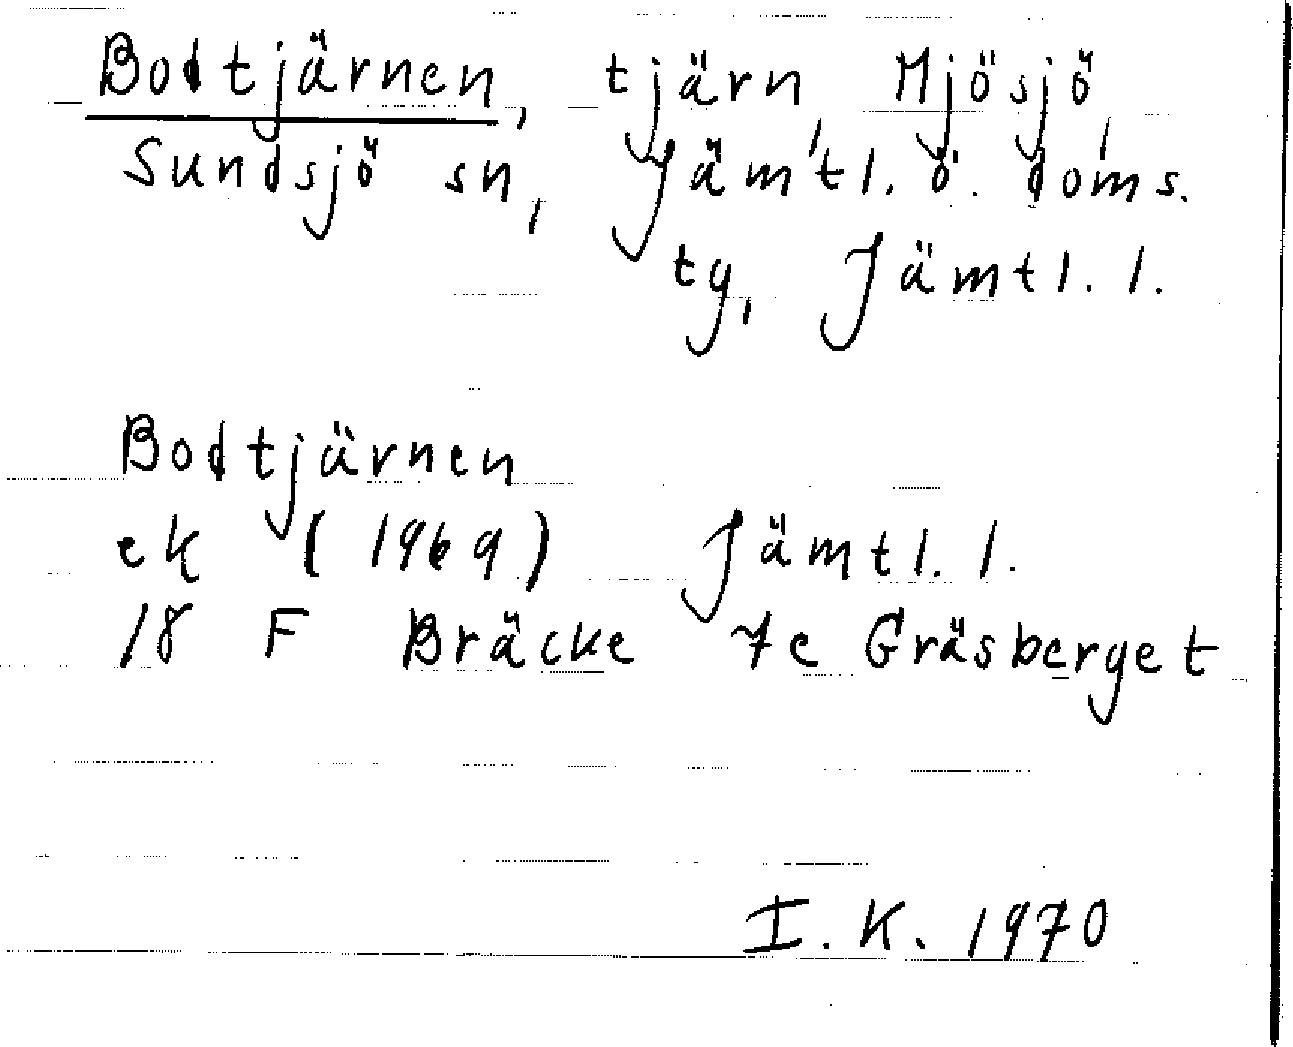 Bodtjärnen, tjärn, Mjösjö,
Sundsjö sn, Jämtl. ö. doms.
tg, Jämtl. l.
Bodtjärnen
ek (1969) Jämtl. l.
18 F Bräcke 7e Gräsberget
I. K. 1970